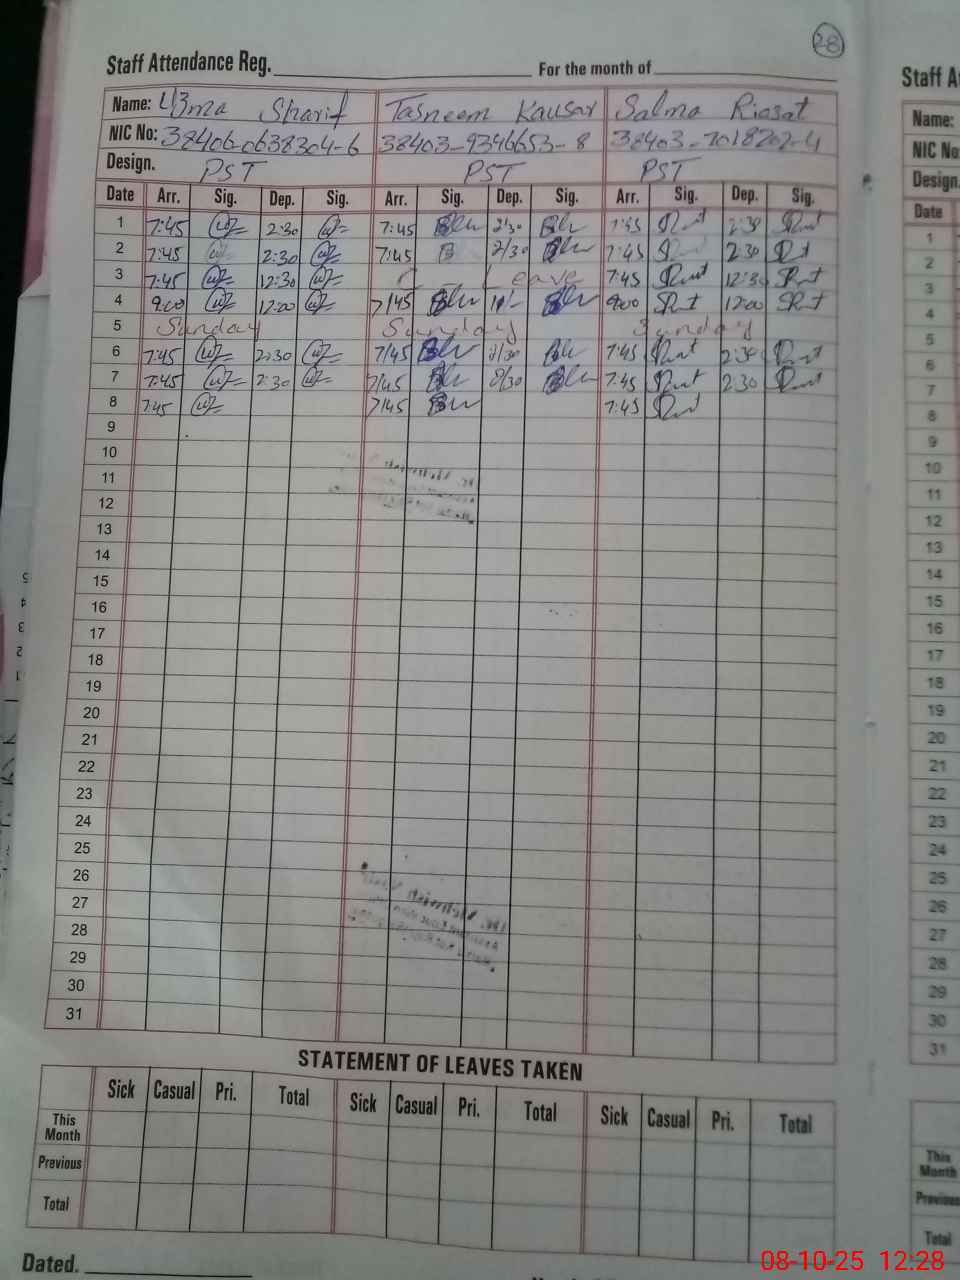 28
Staff Attendance Reg. For the month of
Name: Uzma Sharif Tasneem Kausar Salma Riasat
NIC No: 38406-0638304-6 38403-9346653-8 38403-7018202-4
Design. PST PST PST
Date Arr. Sig. Dep. Sig. Arr. Sig. Dep. Sig. Arr. Sig. Dep. Sig.
1 7:45 2:30 7:45 2/30 7:45 2:30
2 7:45 2:30 7:45 2/30 7:45 2:30
3 7:45 12:30 C Leave 7:45 12:30
4 9:00 12:00 7/45 9:00 12:00
5 Sunday Sunday Sunday
6 7:45 2:30 7/45 2/30 7:45 2:30
7 7:45 2:30 7/45 2/30 7:45 2:30
8 7:45 7/45 7:45
9
10
11
12
13
14
15
16
17
18
19
20
21
22
23
24
25
26
27
28
29
30
31
STATEMENT OF LEAVES TAKEN
Sick Casual Pri. Total Sick Casual Pri. Total Sick Casual Pri. Total
This Month
Previous
Total
Dated.
Staff A
Name:
NIC No
Design.
Date
1
2
3
4
5
6
7
8
9
10
11
12
13
14
15
16
17
18
19
20
21
22
23
24
25
26
27
28
29
30
31
This
Month
Previous
Total
08-10-25 12:28